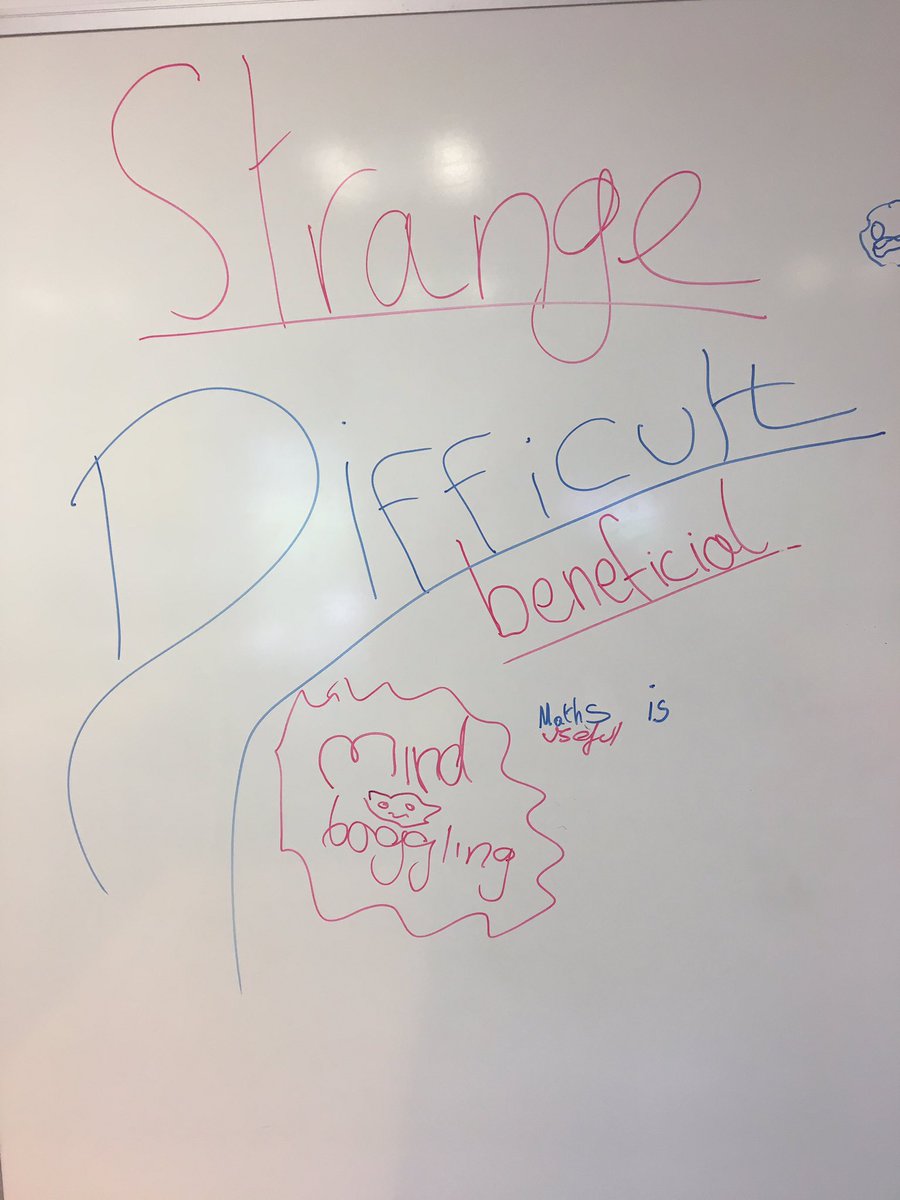 Strange
Difficult
beneficial
Mind
boggling
Maths is
useful